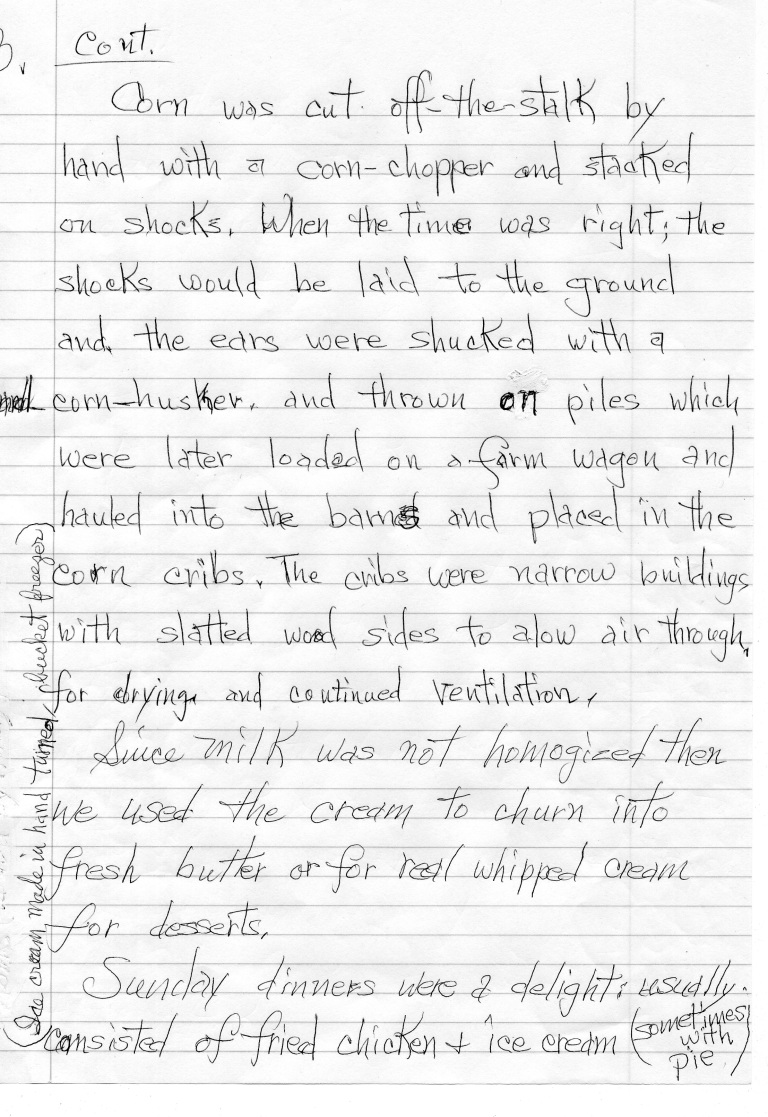 3.
cont.
Corn was cut off-the-stalk by
hand with a corn-chopper and stacked
on shocks. When the time was right; the
shocks would be laid to the ground
and the ears were shucked with a
corn-husker, and thrown on piles which
were later loaded on a farm wagon and
hauled into the barn and placed in the
corn cribs. The cribs were narrow buildings
with slatted wood sides to alow air through,
for drying and continued ventilation,
Since milk was not homogized then
we used the cream to churn into
fresh butter or for real whipped cream
for desserts,
Sunday dinners were a delight; usually
consisted of fried chicken + ice cream (sometimes
with
pie)
(Ice cream made in hand turned bucket freezer)